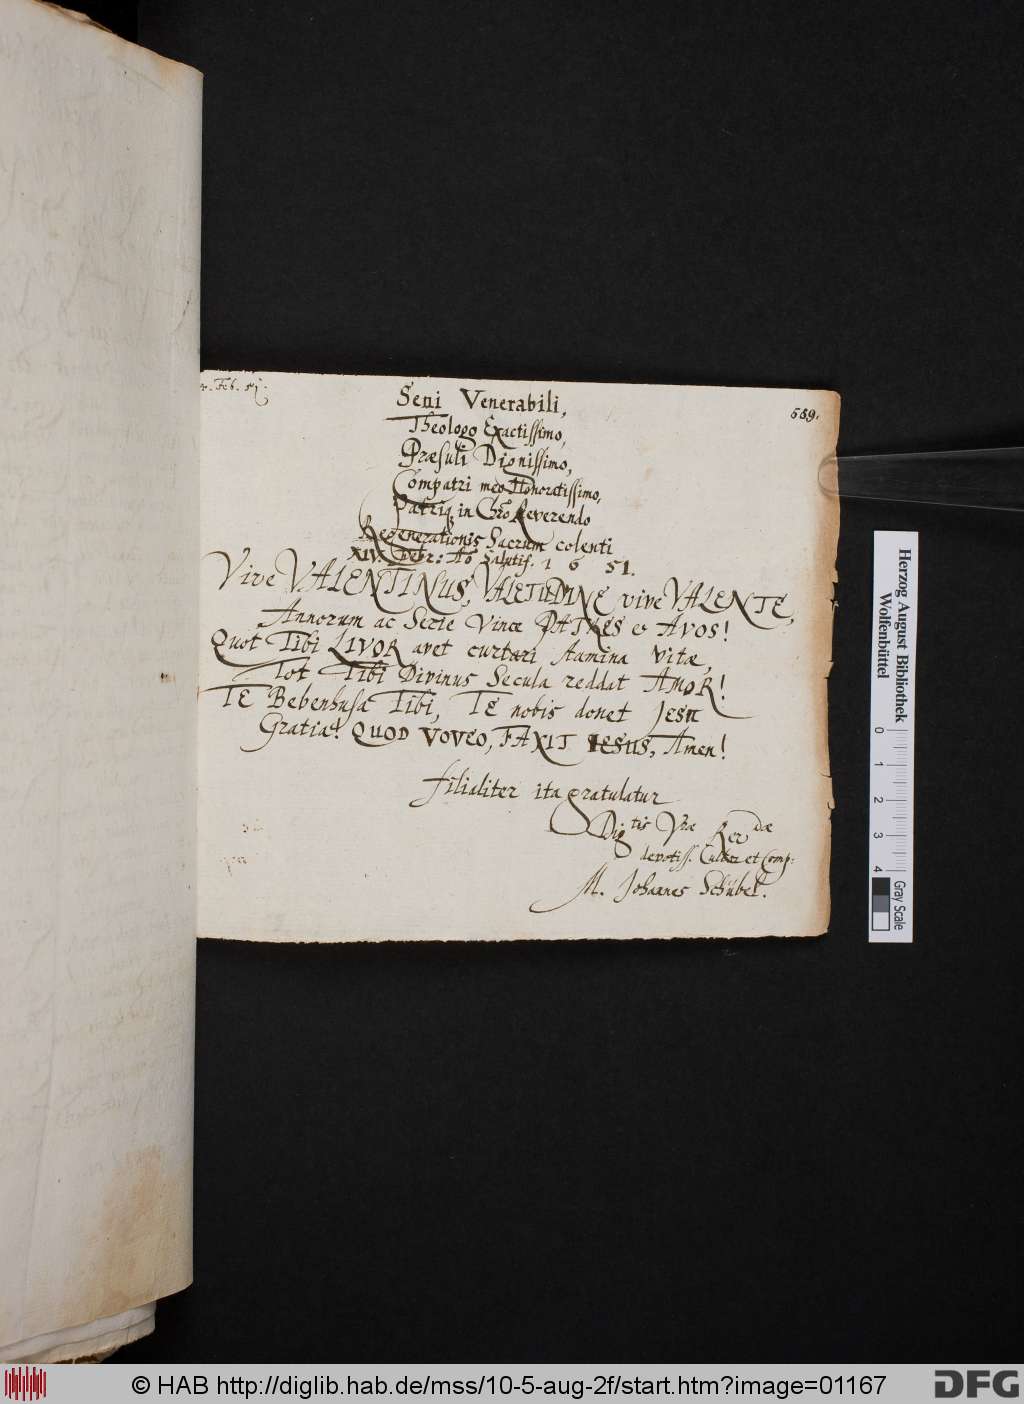 Feb. 51.
589.
Seni Venerabili,
Theologo Exactissimo,
Præsuli Dignissimo,
Compatri meo Honoratissimo,
Patriq. in Chr̄o Reverendo
Regenerationis Sacrum colenti
XIV. Febr: Aō Salutis. 1 6 51.
Vive VALENTINUS, VALETUDINE vive VALENTE,
Annorum ac Serie Vince PATRES & AVOS!
Quot Tibi LIVOR avet curtari stamina vitæ,
Tot Tibi Divinus Secula reddat AMOR!
TE Bebenhusa Tibi, TE nobis donet JESU
Gratia! QUOD VOVEO, FAXIT IESUS, Amen!
filialiter ita gratulatur
Digtis Vræ Rerdæ
devotiss. Cultor et Comp:
M. Johannes Schübel.
Herzog August Bibliothek
Wolfenbüttel
0 1 2 3 4
Gray Scale
© HAB http://diglib.hab.de/mss/10-5-aug-2f/start.htm?image=01167
DFG